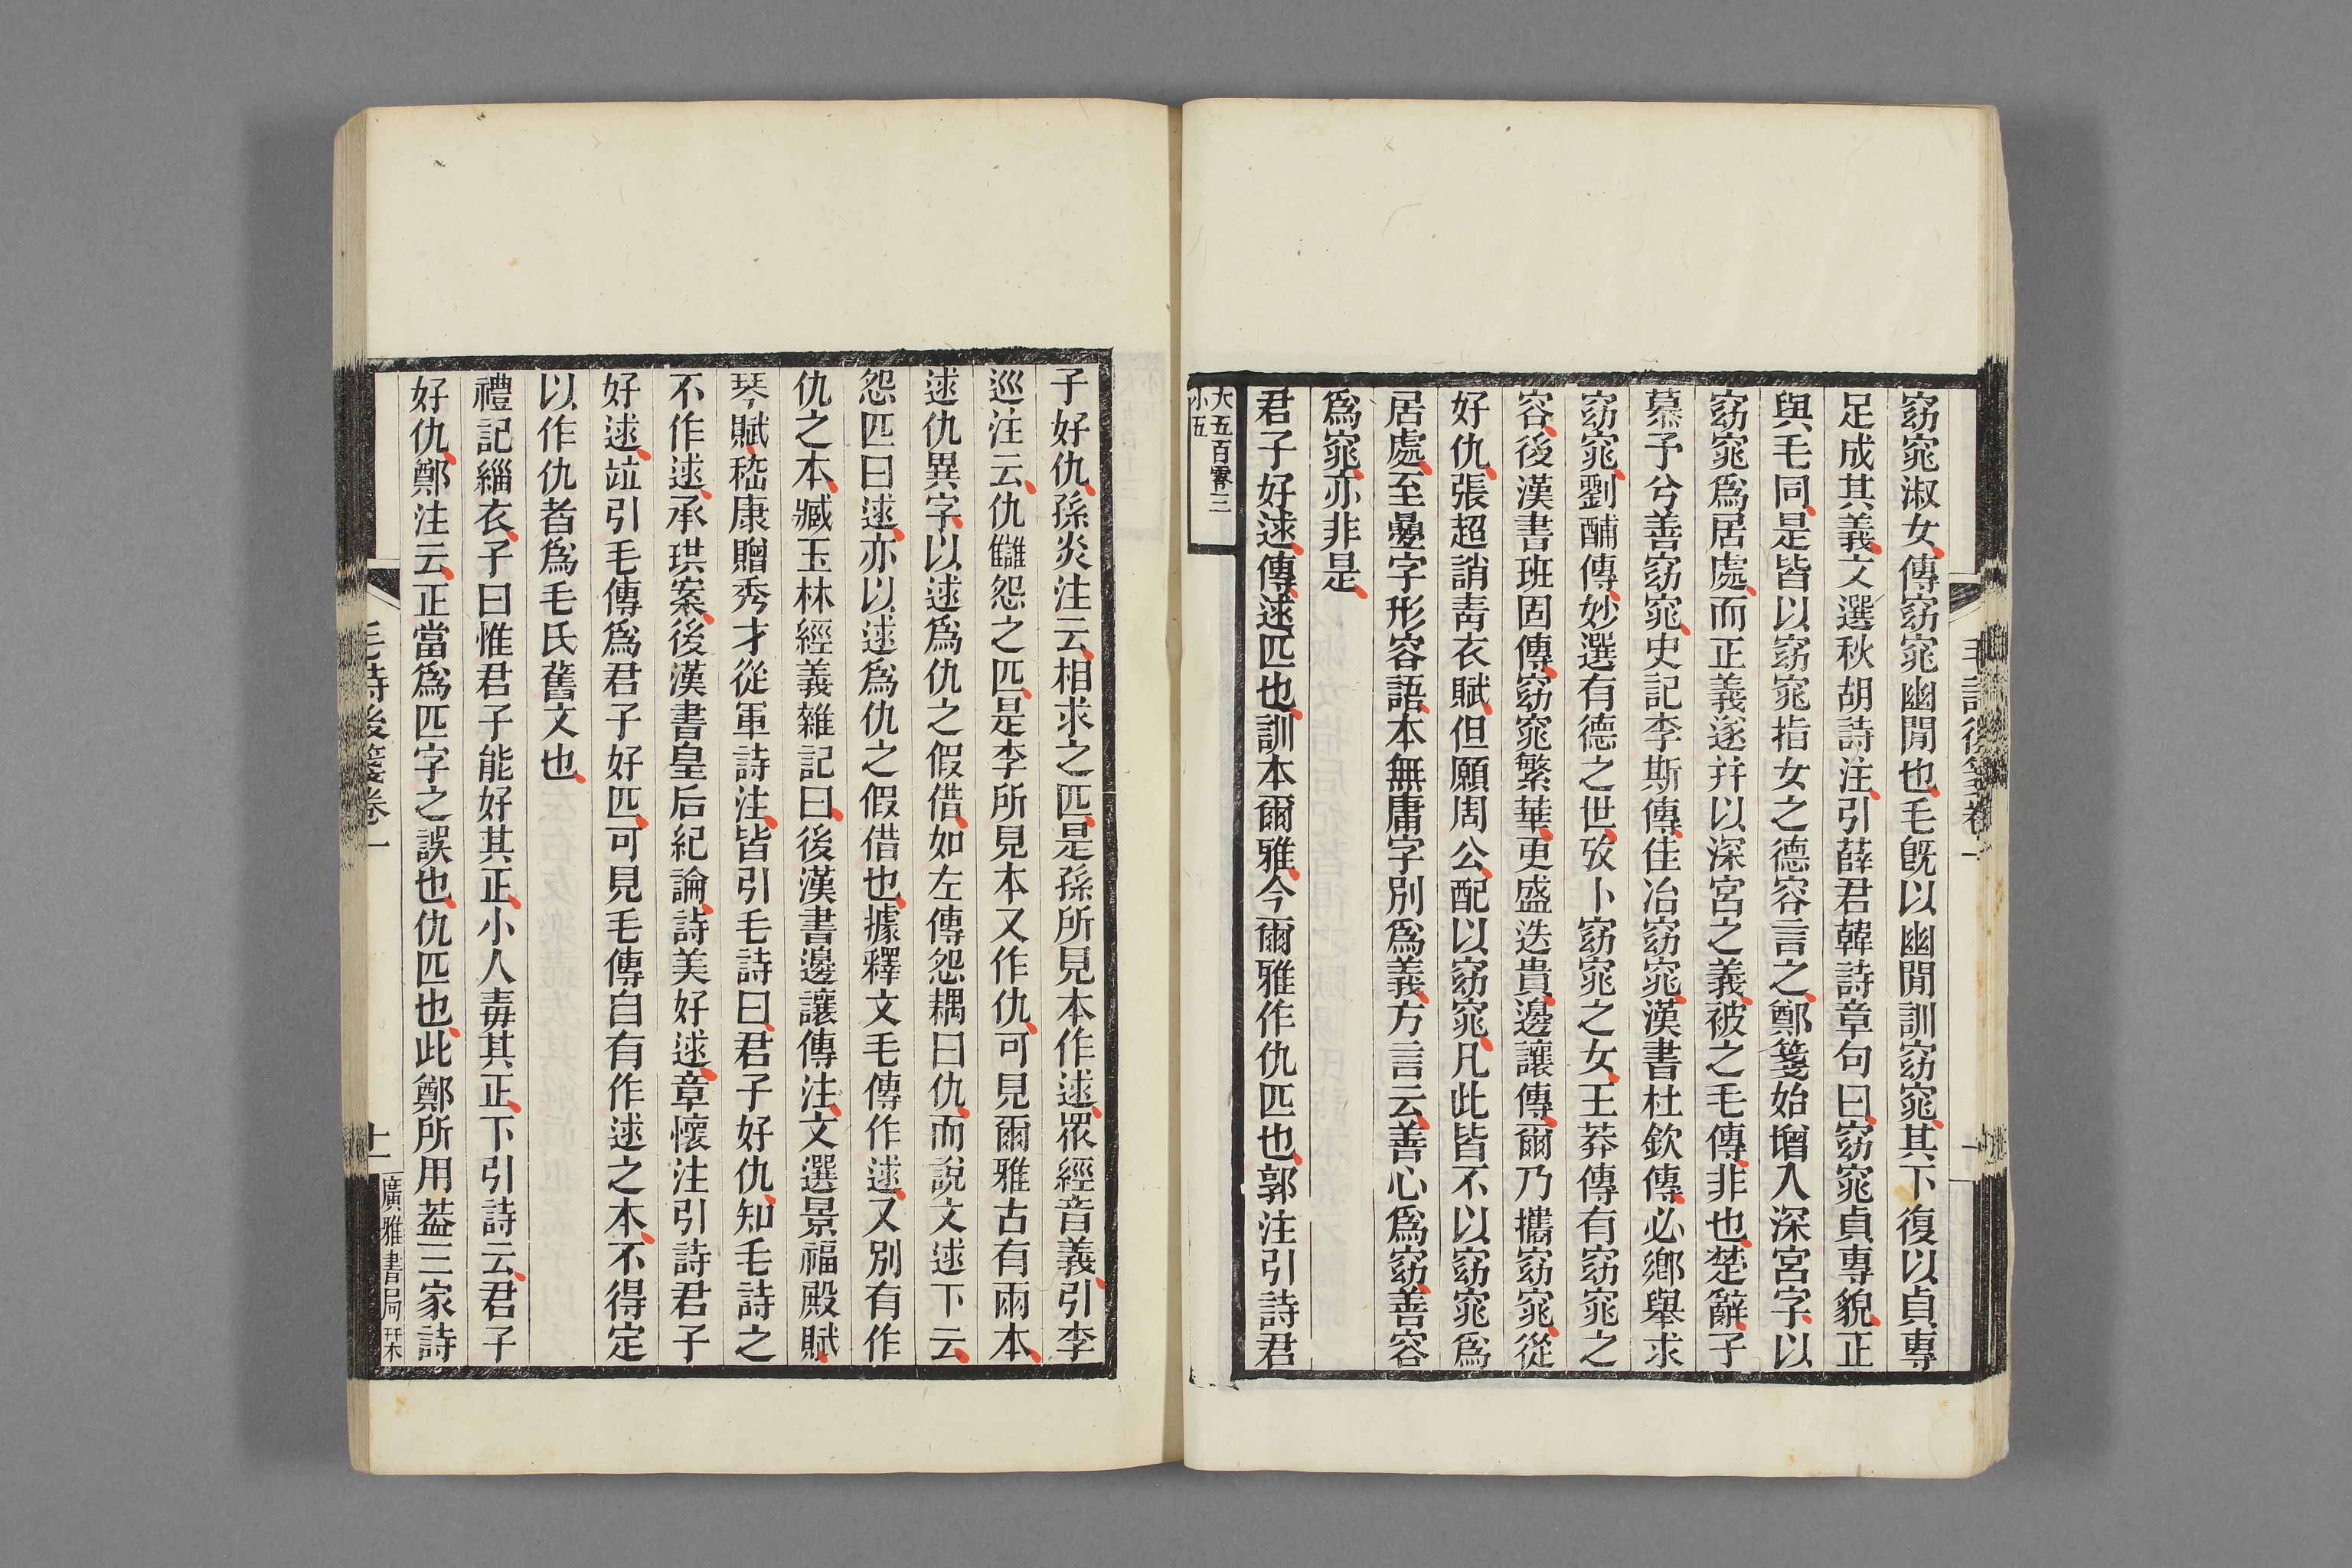 窈窕淑女傳窈窕幽閒也毛旣以幽閒訓窈窕其下復以貞專
足成其義文選秋胡詩注引薛君韓詩章句曰窈窕貞專貌正
與毛同是皆以窈窕指女之德容言之鄭箋始增入深宮字以
窈窕爲居處而正義遂幷以深宮之義被之毛傳非也楚辭子
慕予兮善窈窕史記李斯傳佳冶窈窕漢書杜欽傳必鄉舉求
窈窕劉酺傳妙選有德之世攷卜窈窕之女王莽傳有窈窕之
容後漢書班固傳窈窕繁華更盛迭貴邊讓傳爾乃攜窈窕從
好仇張超誚青衣賦但願周公配以窈窕凡此皆不以窈窕爲
居處至曡字形容語本無庸字別爲義方言云善心爲窈善容
爲窕亦非是
君子好逑傳逑匹也訓本爾雅今爾雅作仇匹也郭注引詩君
大五百零三
小五
子好仇孫炎注云相求之匹是孫所見本作逑眾經音義引李
巡注云仇讎怨之匹是李所見本又作仇可見爾雅古有兩本
逑仇異字以逑爲仇之假借如左傳怨耦曰仇而說文逑下云
怨匹曰逑亦以逑爲仇之假借也據釋文毛傳作逑又別有作
仇之本臧玉林經義雜記曰後漢書邊讓傳注文選景福殿賦
琴賦嵇康贈秀才從軍詩注皆引毛詩曰君子好仇知毛詩之
不作逑承珙案後漢書皇后紀論詩美好逑章懷注引詩君子
好逑竝引毛傳爲君子好匹可見毛傳自有作逑之本不得定
以作仇者爲毛氏舊文也
禮記緇衣子曰惟君子能好其正小人毒其正下引詩云君子
好仇鄭注云正當爲匹字之誤也仇匹也此鄭所用葢三家詩
毛詩後箋卷一
十一
廣雅書局栞